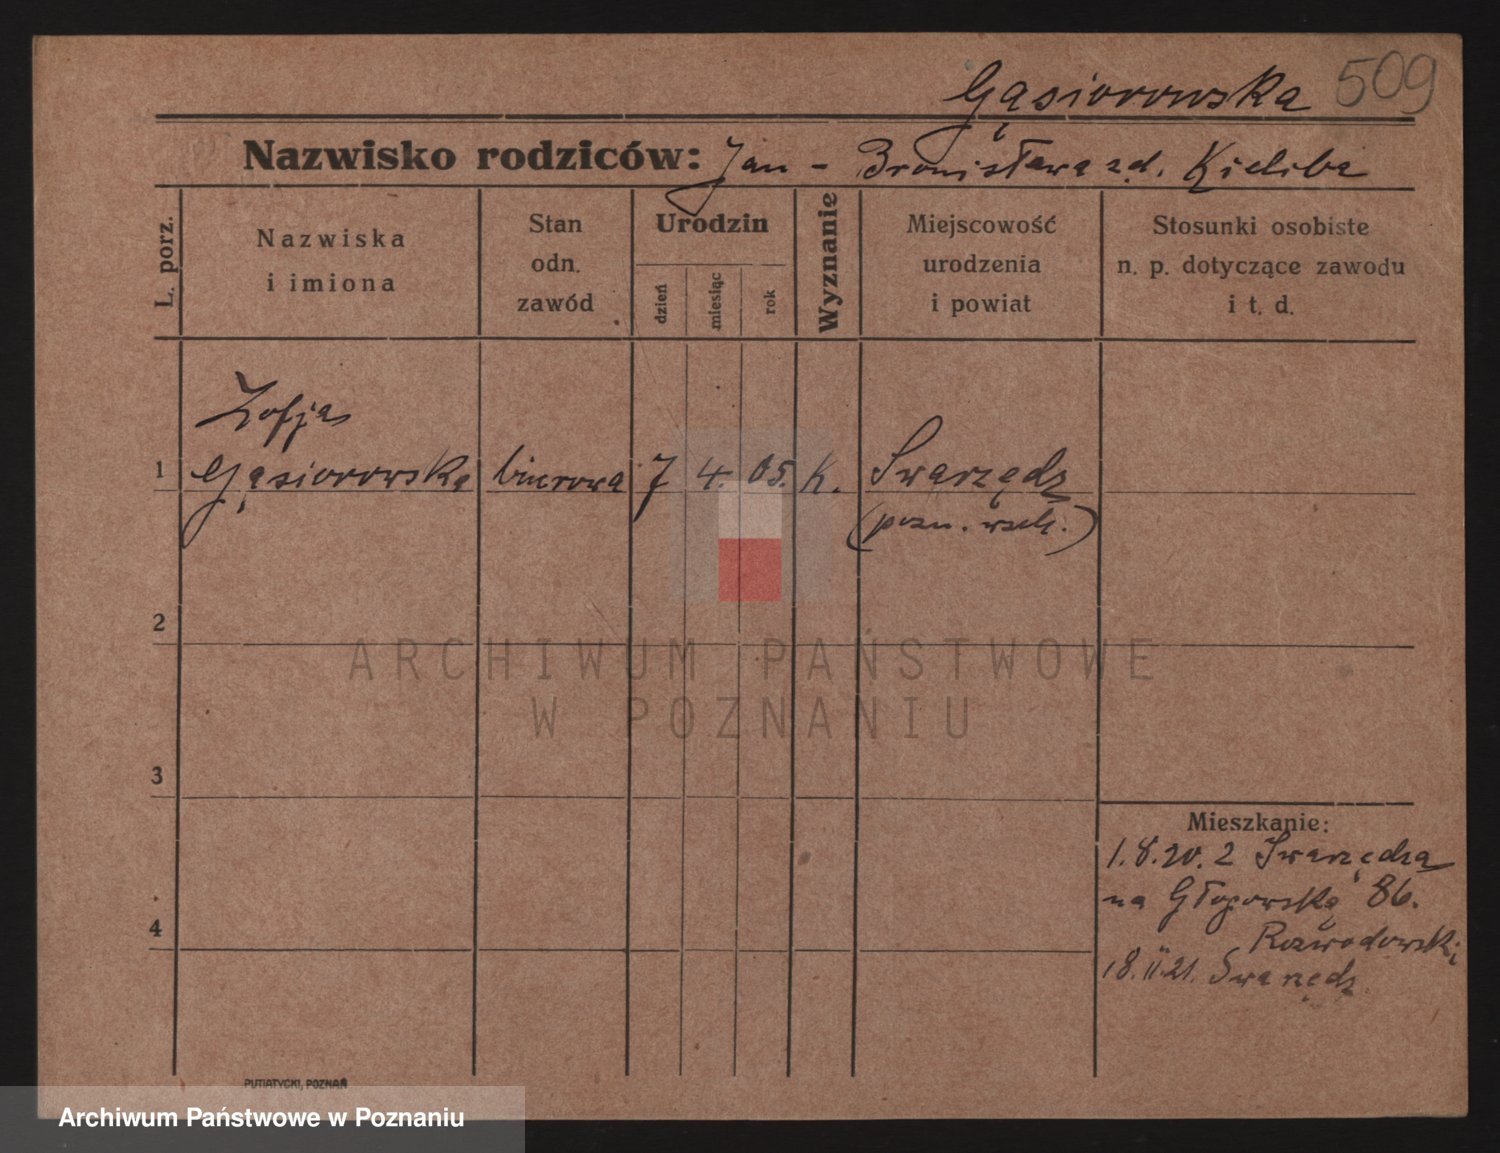 Gąsiorowska 509
Nazwisko rodziców: Jan - Bronisława zd. Kieliba
L. porz.
Nazwiska
i imiona
Stan
odn.
zawód
Urodzin
dzień
miesiąc
rok
Wyznanie
Miejscowość
urodzenia
i powiat
Stosunki osobiste
n. p. dotyczące zawodu
i t. d.
Zofja
1 Gąsiorowska biurowa 7 4. 05. k. Swarzędz
(pozn. wsch.)
2
ARCHIWUM PAŃSTWOWE
W POZNANIU
3
Mieszkanie:
1.8.20. z Swarzędza
na Głogowską 86.
4
Rozwadowski
18.II.21. Swarzędz
PUTIATYCKI, POZNAŃ
Archiwum Państwowe w Poznaniu